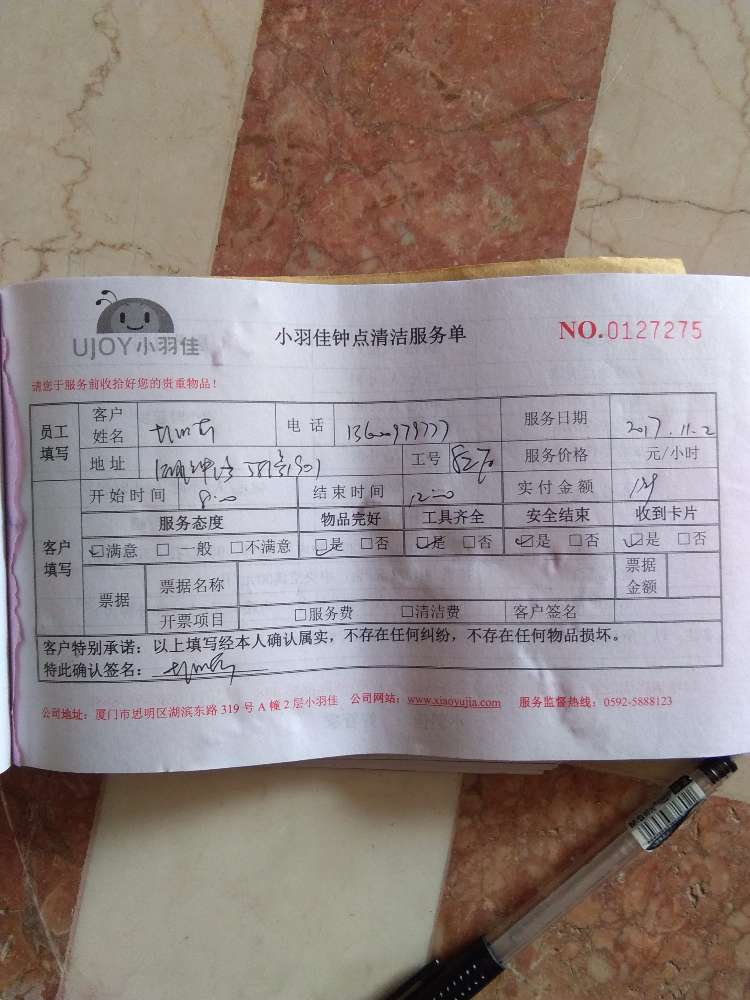 UJOY小羽佳
小羽佳钟点清洁服务单
NO.0127275
请您于服务前收拾好您的贵重物品！
员工填写 客户姓名 电话 13600979777 服务日期 2017.11.2
地址 58号901 工号 服务价格 元/小时
客户填写 开始时间 8:00 结束时间 12:00 实付金额
服务态度 物品完好 工具齐全 安全结束 收到卡片
☑满意 □一般 □不满意 ☑是 □否 ☑是 □否 ☑是 □否 ☑是 □否
票据 票据名称 票据金额
开票项目 □服务费 □清洁费 客户签名
客户特别承诺：以上填写经本人确认属实，不存在任何纠纷，不存在任何物品损坏。
特此确认签名：
公司地址：厦门市思明区湖滨东路319号A幢2层小羽佳 公司网站：www.xiaoyujia.com 服务监督热线：0592-5888123